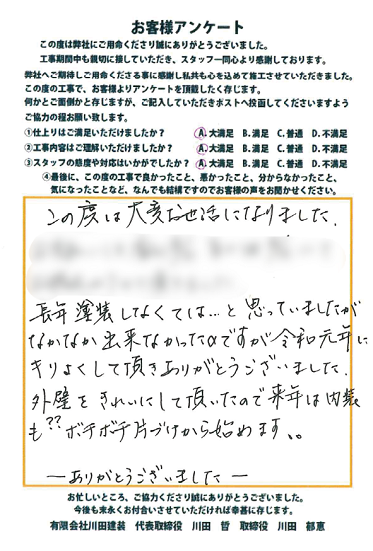 お客様アンケート
この度は弊社にご用命くださり誠にありがとうございました。
工事期間中も親切に接していただき、スタッフ一同心より感謝しております。
弊社へご期待しご用命くださる事に感謝し私共も心を込めて施工させていただきました。
この度の工事で、お客様よりアンケートを頂戴したく存じます。
何かとご面倒かと存じますが、ご記入していただきポストへ投函してくださいますよう
ご協力の程お願い致します。
①仕上りはご満足いただけましたか? A.大満足 B.満足 C.普通 D.不満足
②工事内容はご理解いただけましたか? A.大満足 B.満足 C.普通 D.不満足
③スタッフの態度や対応はいかがでしたか? A.大満足 B.満足 C.普通 D.不満足
④最後に、この度の工事で良かったこと、悪かったこと、分からなかったこと、
気になったことなど、なんでも結構ですのでお客様の声をお聞かせください。
この度は大変お世話になりました.
長年塗装しなくては…と思っていましたが
なかなか出来なかったのですが令和元年に
キリよくして頂きありがとうございました.
外壁をきれいにして頂いたので来年は内装
も??ボチボチ片づけから始めます、。
ーありがとうございましたー
お忙しいところ、ご協力くださり誠にありがとうございました。
今後も末永くお付合いさせていただければ幸甚に存じます。
有限会社川田建装 代表取締役 川田 哲 取締役 川田 郁恵